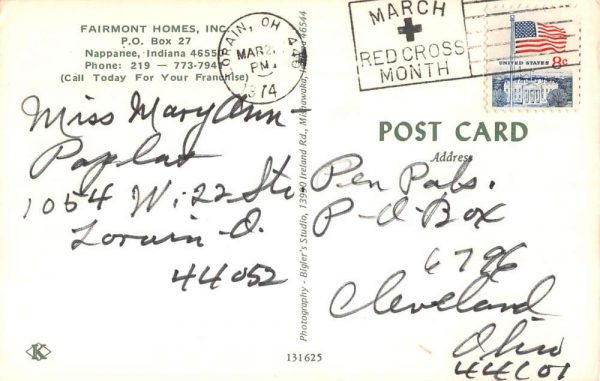 FAIRMONT HOMES, INC.
P.O. Box 27
Nappanee, Indiana 46550
Phone: 219 — 773-794
(Call Today For Your Franchise)
LORAIN, OH 440
MAR 2
PM
1974
MARCH
RED CROSS
MONTH
UNITED STATES 8c
Miss Mary Ann
1054 W. 22 St.
Lorain - O.
44052
Photography - Bigler's Studio, 13990 Ireland Rd., Mishawaka, Indiana 46544
POST CARD
Address
Pen Pals.
P-O-Box
6796
Cleveland
Ohio
44101
K
131625